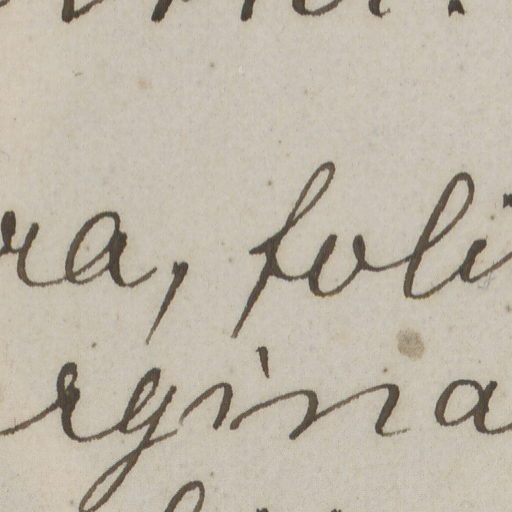 ra, foli
rgina